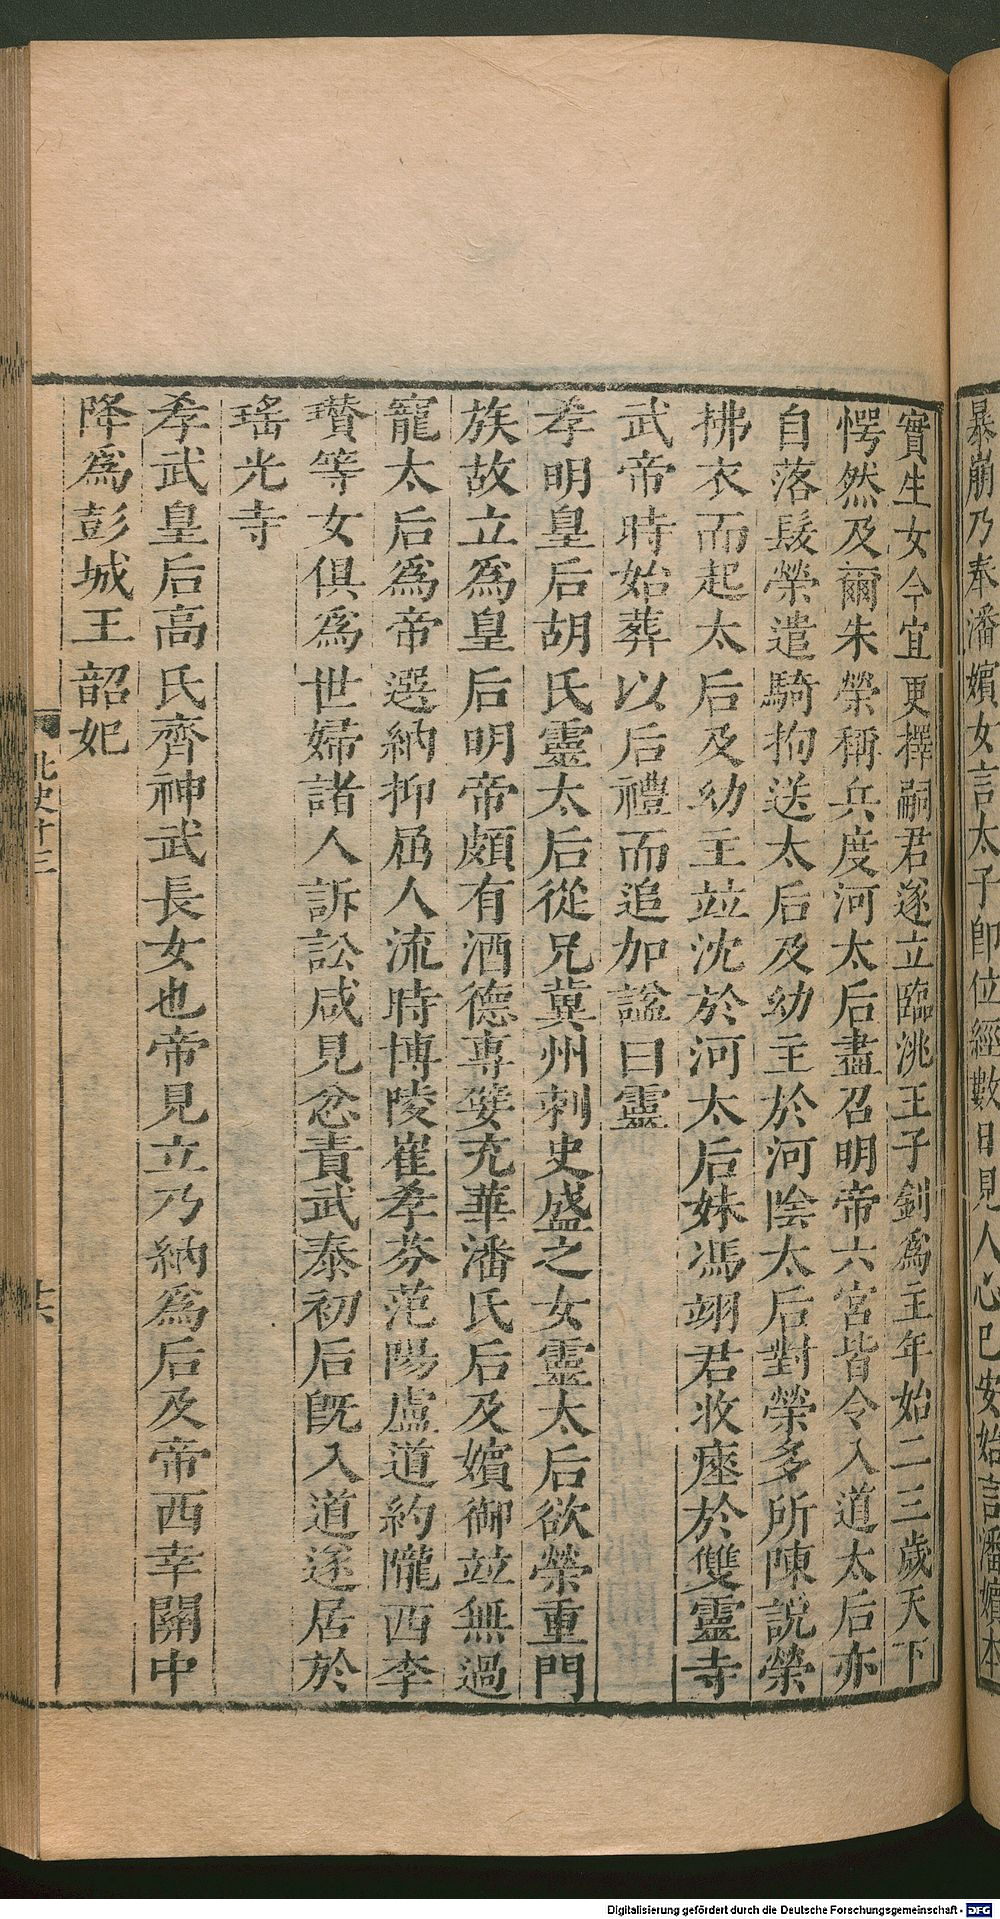 暴崩乃奉潘嬪女言太子即位經數日見人心已安始言潘嬪本
實生女今宜更擇嗣君遂立臨洮王子釗爲主年始二三歲天下
愕然及爾朱榮稱兵度河太后盡召明帝六宮皆令入道太后亦
自落髮榮遣騎拘送太后及幼主於河陰太后對榮多所陳說榮
拂衣而起太后及幼主竝沈於河太后妹馮翊君收瘞於雙靈寺
武帝時始葬以后禮而追加諡曰靈
孝明皇后胡氏靈太后從兄兾州刺史盛之女靈太后欲榮重門
族故立爲皇后明帝頗有酒德專嬖充華潘氏后及嬪御竝無過
寵太后爲帝選納抑屈人流時博陵崔孝芬范陽盧道約隴西李
瓚等女俱爲世婦諸人訴訟咸見忿責武泰初后旣入道遂居於
瑤光寺
孝武皇后高氏齊神武長女也帝見立乃納爲后及帝西幸關中
降爲彭城王韶妃
北史十三
Digitalisierung gefördert durch die Deutsche Forschungsgemeinschaft - DFG